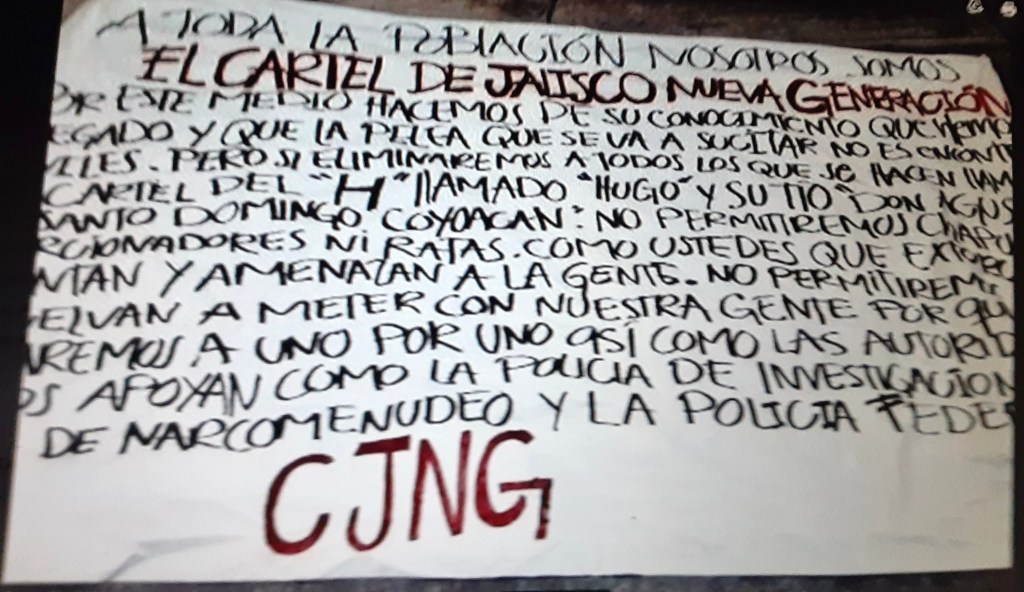 A TODA LA POBLACIÓN NOSOTROS SOMOS
EL CARTEL DE JALISCO NUEVA GENERACIÓN
OR ESTE MEDIO HACEMOS DE SU CONOCIMIENTO QUE HEMO
EGADO Y QUE LA PELEA QUE SE VA A SUCITAR NO ES ENCONT
ILES. PERO SI ELIMINAREMOS A TODOS LOS QUE SE HACEN LLAM
CARTEL DEL "H" LLAMADO "HUGO" Y SU TIO "DON AGUS
SANTO DOMINGO COYOACAN: NO PERMITIREMOS CHAPU
RCIONADORES NI RATAS. COMO USTEDES QUE EXTOR
NTAN Y AMENAZAN A LA GENTE. NO PERMITIREM
ELVAN A METER CON NUESTRA GENTE POR QU
AREMOS A UNO POR UNO ASÍ COMO LAS AUTORID
OS APOYAN COMO LA POLICIA DE INVESTIGACION
DE NARCOMENUDEO Y LA POLICIA FEDE
CJNG